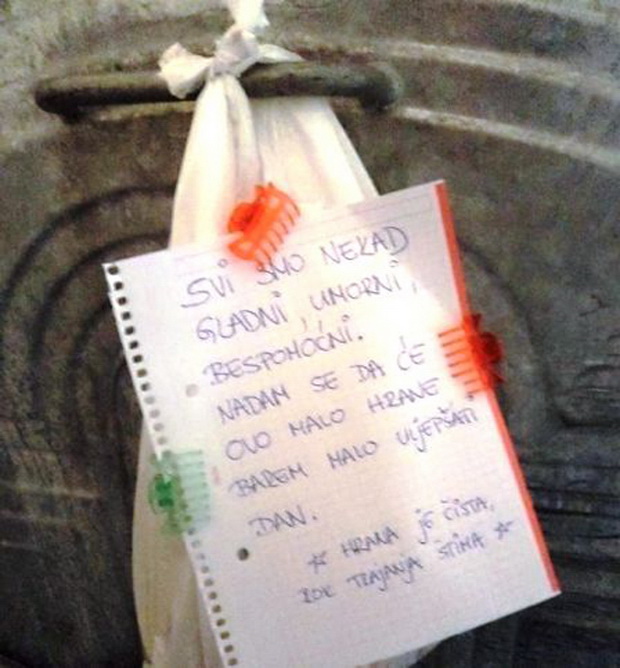 SVI SMO NEKAD
GLADNI, UMORNI,
BESPOMOĆNI.
NADAM SE DA ĆE
OVO MALO HRANE
BAREM MALO ULJEPŠATI
DAN.
* HRANA JE ČISTA,
ROK TRAJANJA ŠTIMA *